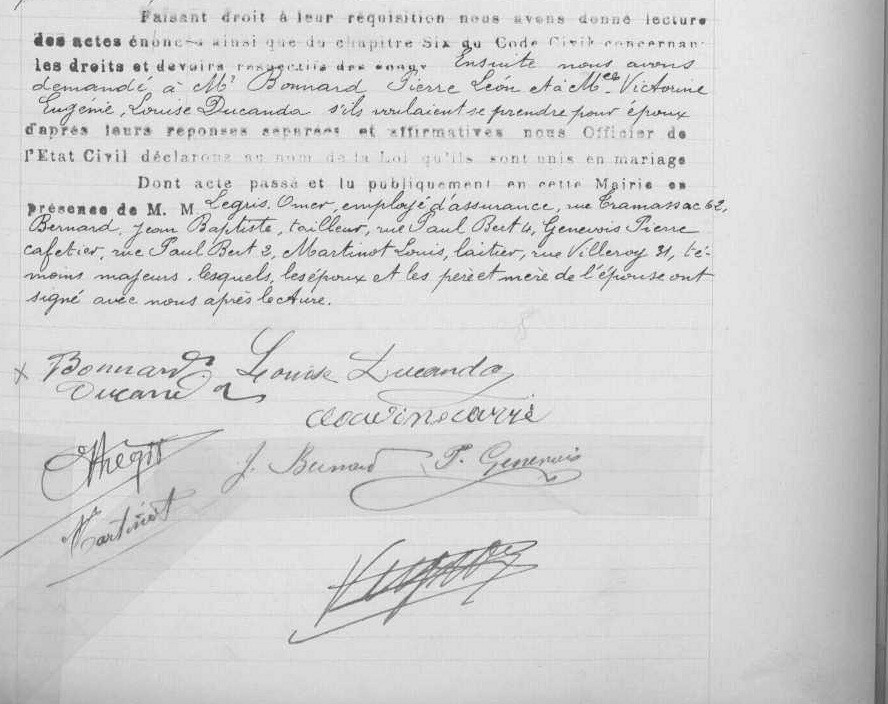 Faisant droit à leur réquisition nous avons donné lecture
des actes énoncés ainsi que du chapitre Six du Code Civil concernant
les droits et devoirs respectifs des époux Ensuite nous avons
demandé à Mr Bonnard Pierre Léon et à Melle Victorine
Eugénie, Louise Ducanda s'ils voulaient se prendre pour époux
d'après leurs réponses séparées et affirmatives nous Officier de
l'Etat Civil déclarons au nom de la Loi qu'ils sont unis en mariage
Dont acte passé et lu publiquement en cette Mairie en
présence de M. M. Legris. Omer, employé d'assurance, rue Tramassac 62,
Bernard, Jean Baptiste, tailleur, rue Paul Bert 4, Genevois Pierre
cafetier, rue Paul Bert 2, Martinot Louis, laitier, rue Villeroy 31, té-
moins majeurs. lesquels, les époux et les père et mère de l'épouse ont
signé avec nous après lecture.
Bonnard Louise Ducanda
Ducanda
J. Bernard P. Genevois
Martinot